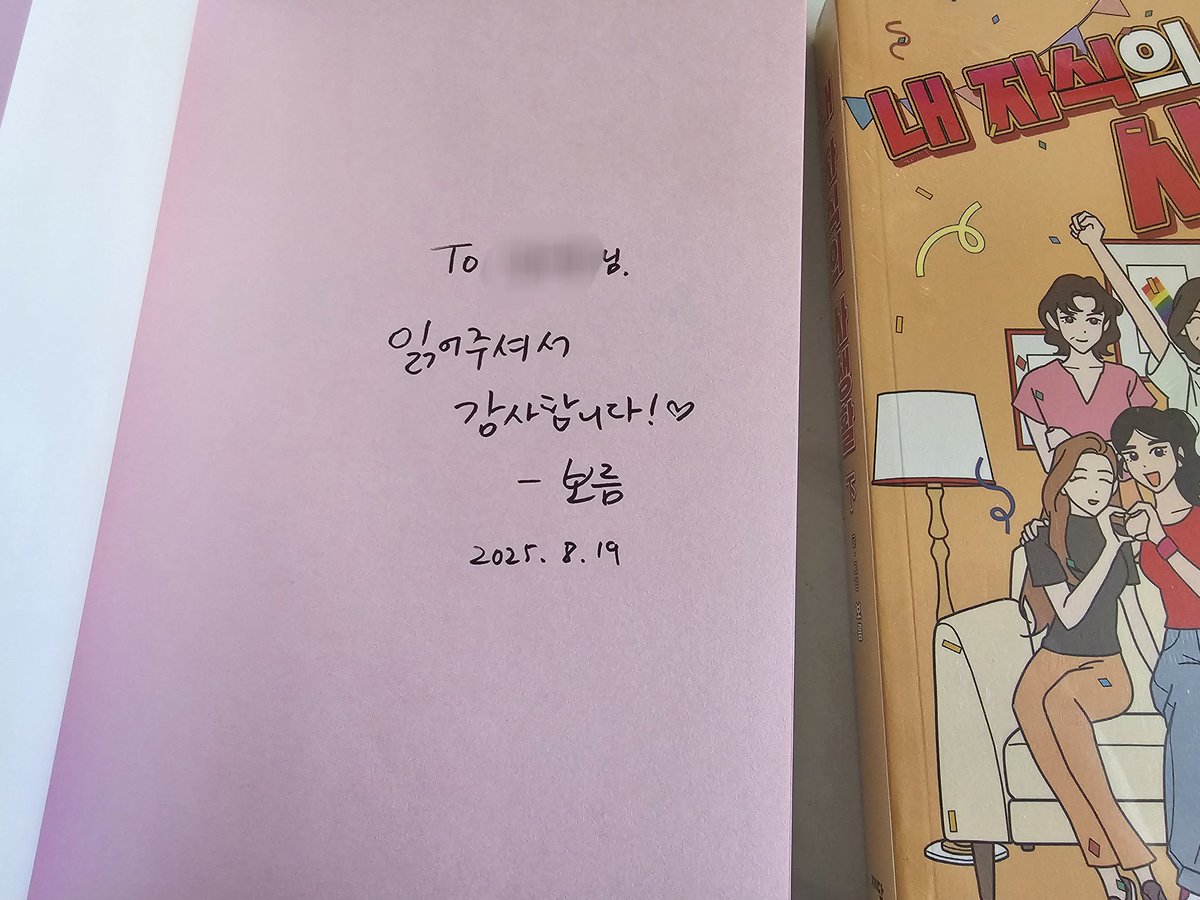 To 님.
읽어주셔서
감사합니다!♡
- 보름
2025. 8. 19
내 자식의